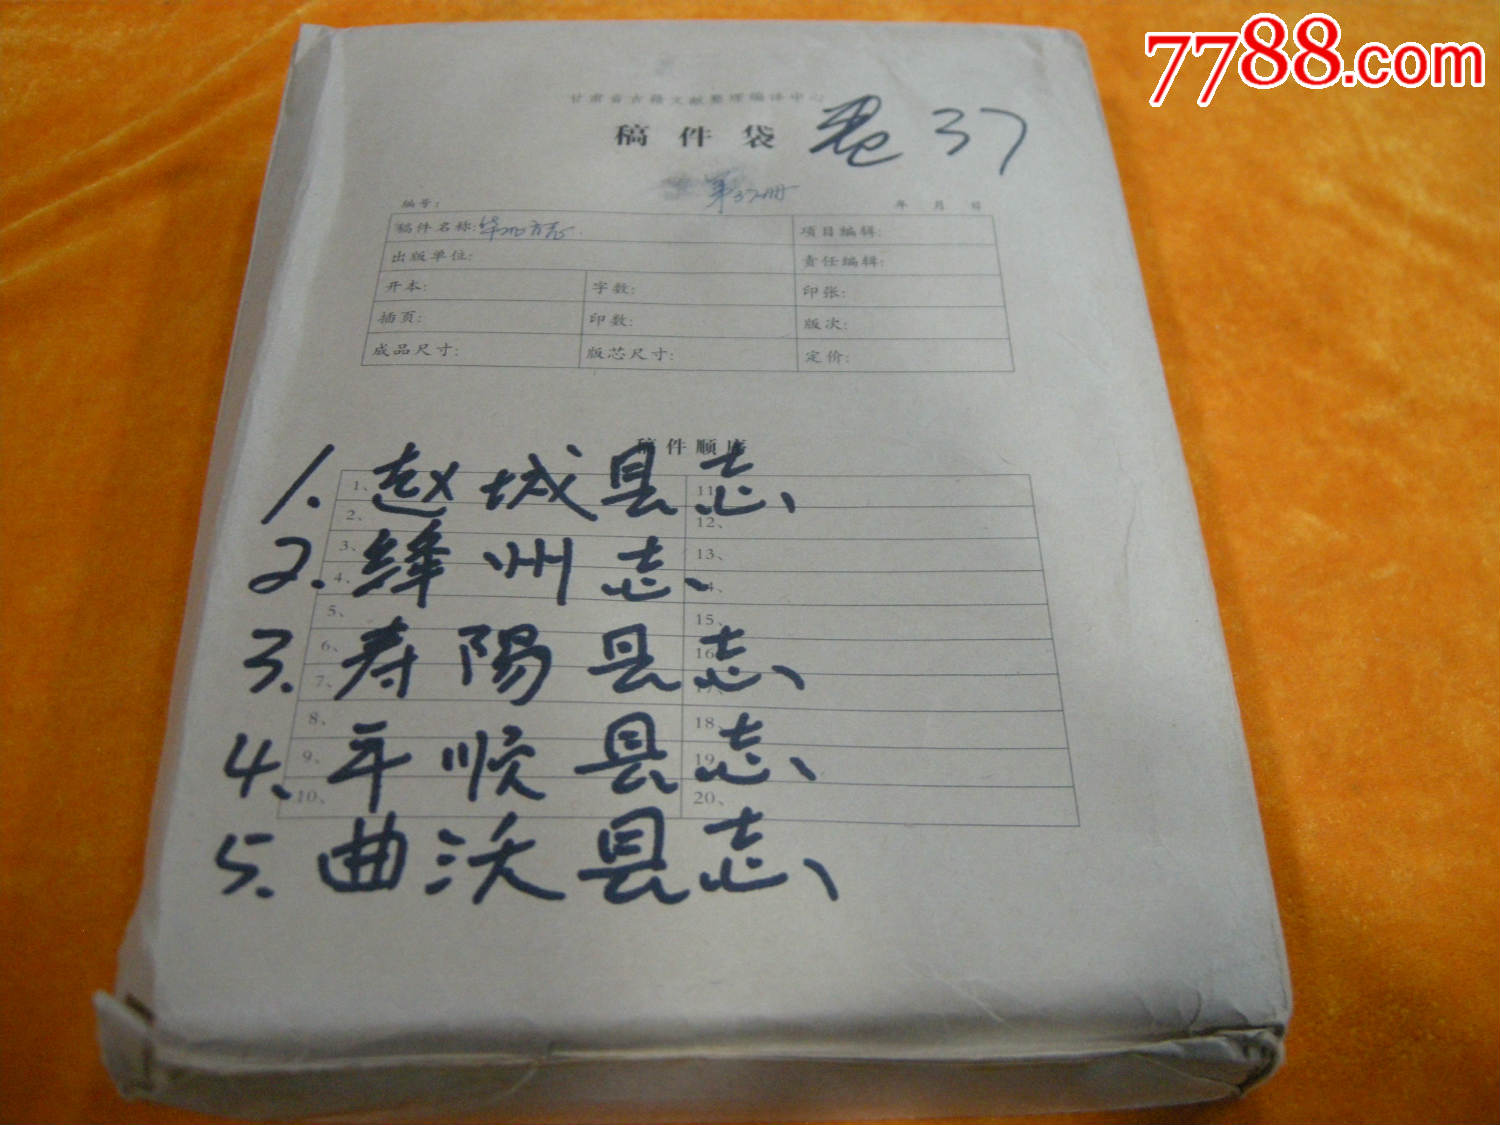 7788.com
甘肃省古籍文献整理编译中心
稿件袋 卷37
第37册
编号: 年 月 日
稿件名称:华北方志 项目编辑:
出版单位: 责任编辑:
开本: 字数: 印张:
插页: 印数: 版次:
成品尺寸: 版芯尺寸: 定价:
稿件顺序
1、 11
2、 12、
3、 13、
4、 4、
5、 15、
6、 16
7、 17、
8、 18、
9、 19
10、 20、
1.赵城县志、
2.绛州志、
3.寿阳县志、
4.平顺县志、
5.曲沃县志、